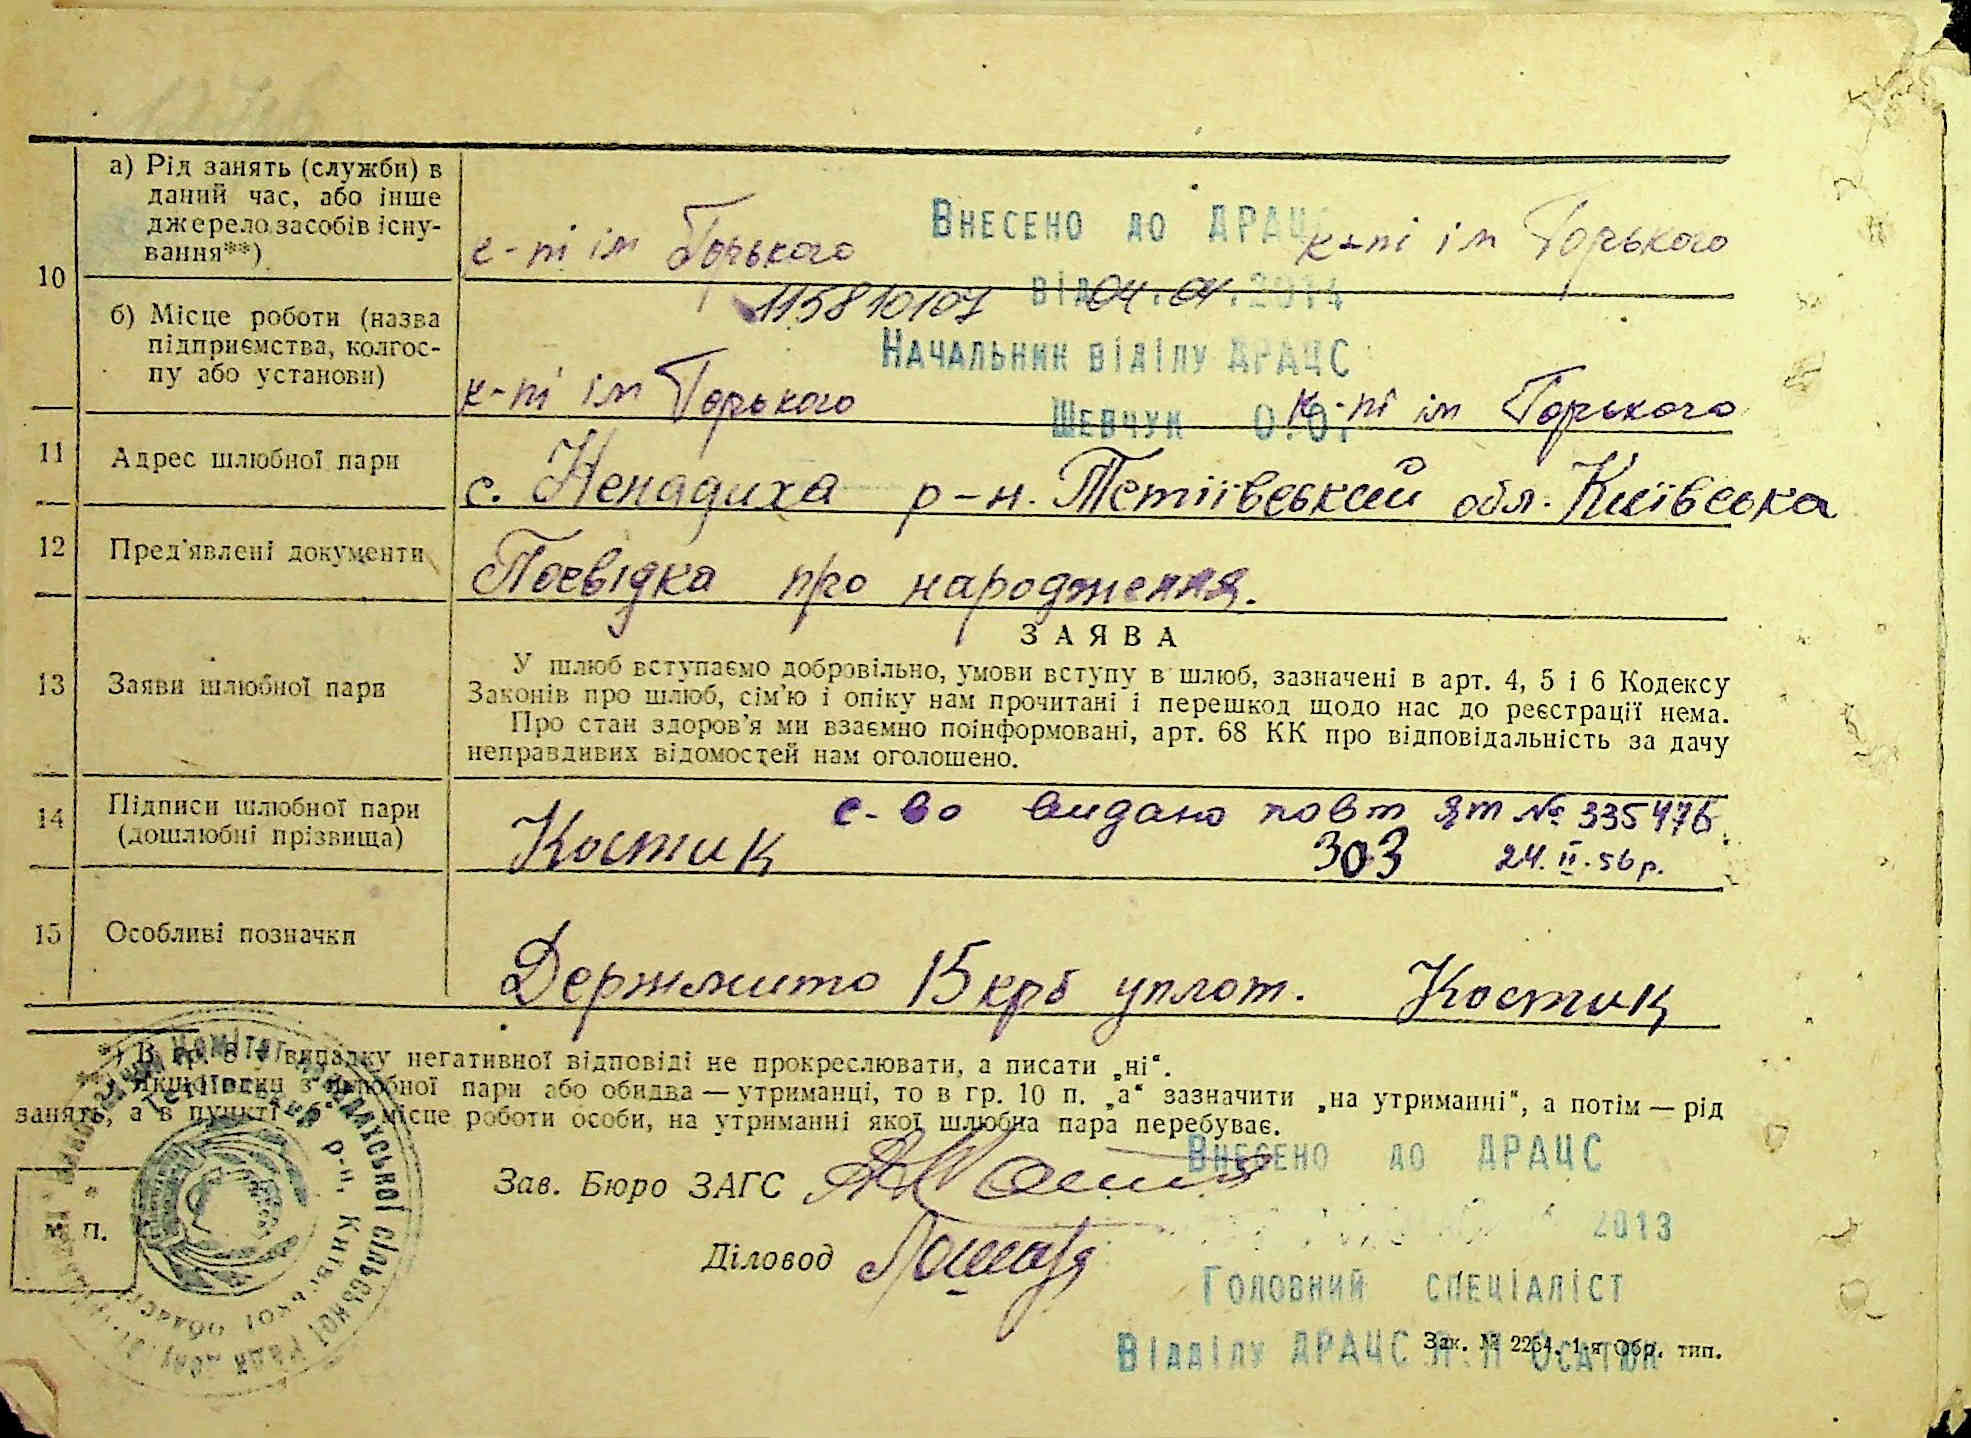 а) Рід занять (служби) в
даний час, або інше
джерело засобів існу-
вання**)
к-пі ім Горького
к-пі ім Горького
ВНЕСЕНО ДО ДРАЦС
10
115810107
від 04.04.2014
б) Місце роботи (назва
підприємства, колгос-
пу або установи)
к-пі ім Горького
к-пі ім Горького
НАЧАЛЬНИК ВІДІЛУ ДРАЦС
ШЕВЧУК
11 Адрес шлюбної пари
с. Ненадиха р-н. Тетіївський обл. Київська
12 Пред'явлені документи
Посвідка про народження.
13 Заяви шлюбної пари
ЗАЯВА
У шлюб вступаємо добровільно, умови вступу в шлюб, зазначені в арт. 4, 5 і 6 Кодексу
Законів про шлюб, сім'ю і опіку нам прочитані і перешкод щодо нас до реєстрації нема.
Про стан здоров'я ми взаємно поінформовані, арт. 68 КК про відповідальність за дачу
неправдивих відомостей нам оголошено.
14 Підписи шлюбної пари
(дошлюбні прізвища)
с-во видано повт ЯТ № 335476
Костик 303 24.II.56р.
15 Особливі позначки
Держмито 15 крб уплот. Костик
*) В гр. 8 у випадку негативної відповіді не прокреслювати, а писати „ні“.
**) Якщо один з шлюбної пари або обидва — утриманці, то в гр. 10 п. „а“ зазначити „на утриманні“, а потім — рід
занять, а в пункті „б“ — місце роботи особи, на утриманні якої шлюбна пара перебуває.
ВНЕСЕНО ДО ДРАЦС
Зав. Бюро ЗАГС
М. П.
2013
Діловод
ГОЛОВНИЙ СПЕЦІАЛІСТ
ВІДДІЛУ ДРАЦС Л.П ОСАТЮК
Зак. № 2264. 1-я Обр. тип.